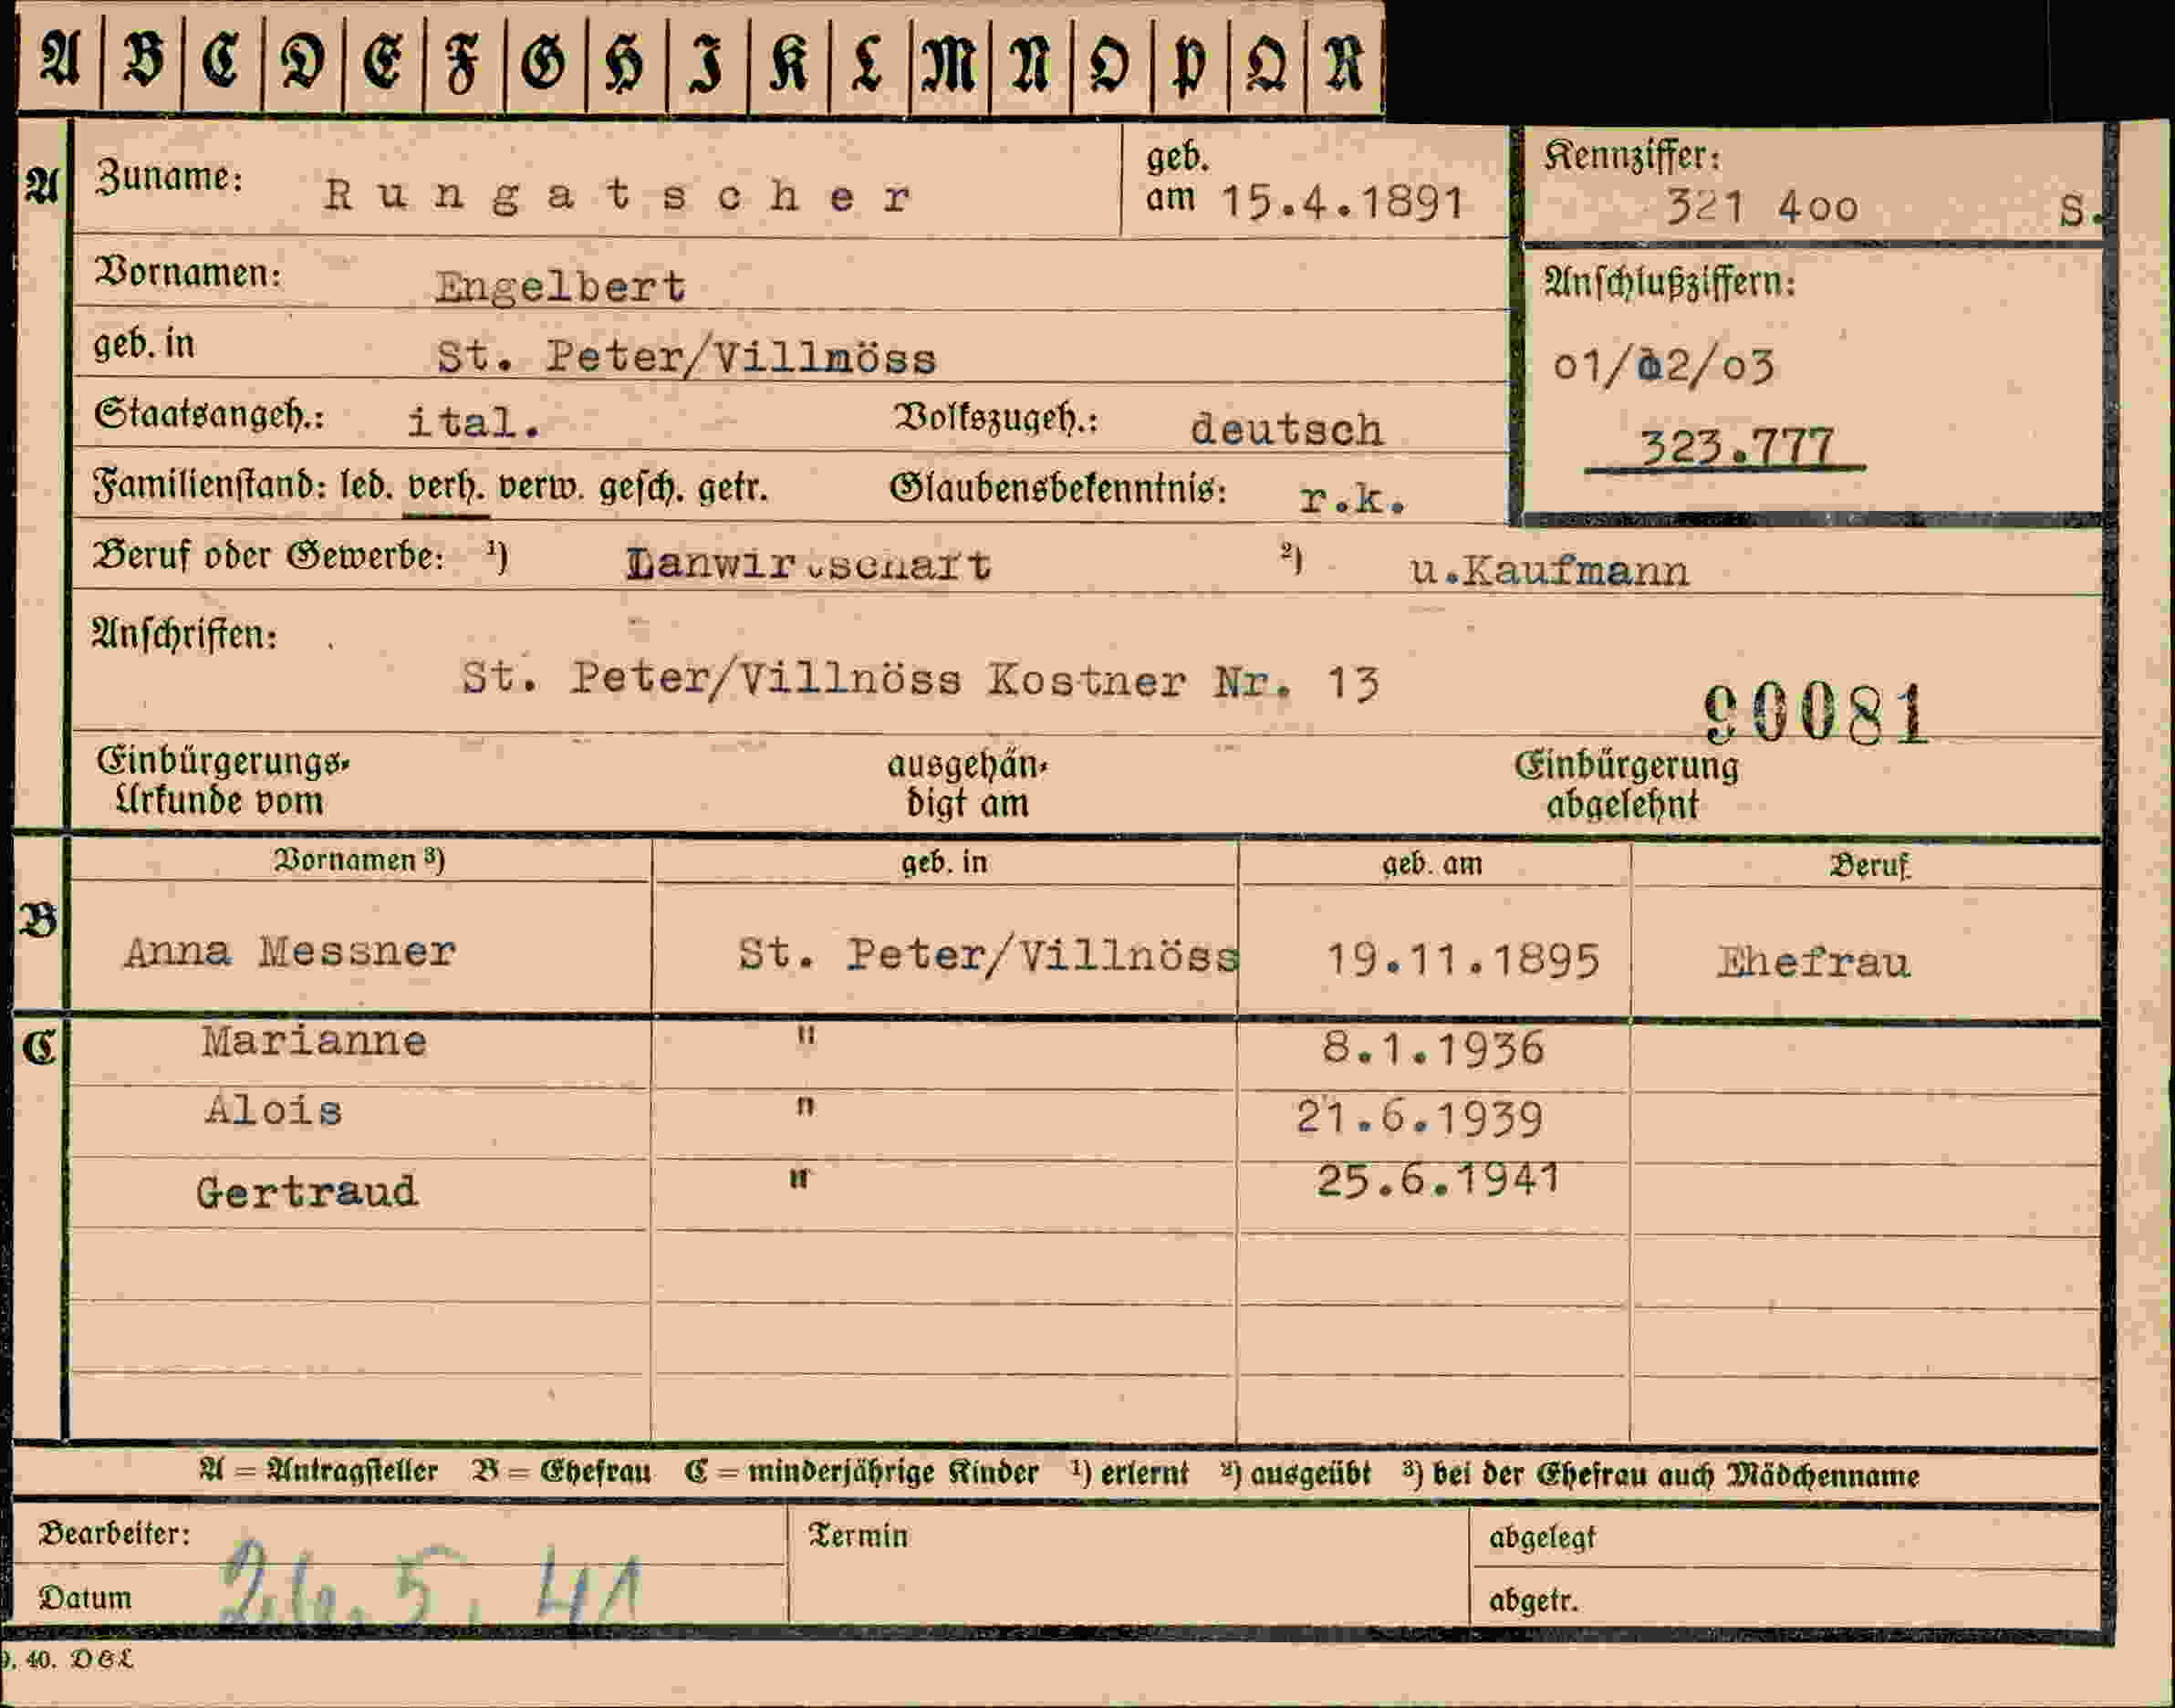 A B C D E F G H I K L M N O P Q R
A Zuname: Rungatscher geb. am 15.4.1891 Kennziffer: 321 400 S.
Vornamen: Engelbert
Anschlußziffern:
geb. in St. Peter/Villnöss
01/02/03
Staatsangeh.: ital. Volkszugeh.: deutsch
323.777
Familienstand: led. verh. verw. gesch. getr. Glaubensbekenntnis: r.k.
Beruf oder Gewerbe: ¹) Lanwirtschaft ²) u.Kaufmann
Anschriften:
St. Peter/Villnöss Kostner Nr. 13
90081
Einbürgerungs- ausgehän- Einbürgerung
Urkunde vom digt am abgelehnt
Vornamen ³) geb. in geb. am Beruf
B Anna Messner St. Peter/Villnöss 19.11.1895 Ehefrau
C Marianne " 8.1.1936
Alois " 21.6.1939
Gertraud " 25.6.1941
A = Antragsteller B = Ehefrau C = minderjährige Kinder ¹) erlernt ²) ausgeübt ³) bei der Ehefrau auch Mädchenname
Bearbeiter: Termin abgelegt
Datum 26.5.41 abgetr.
40. D&L